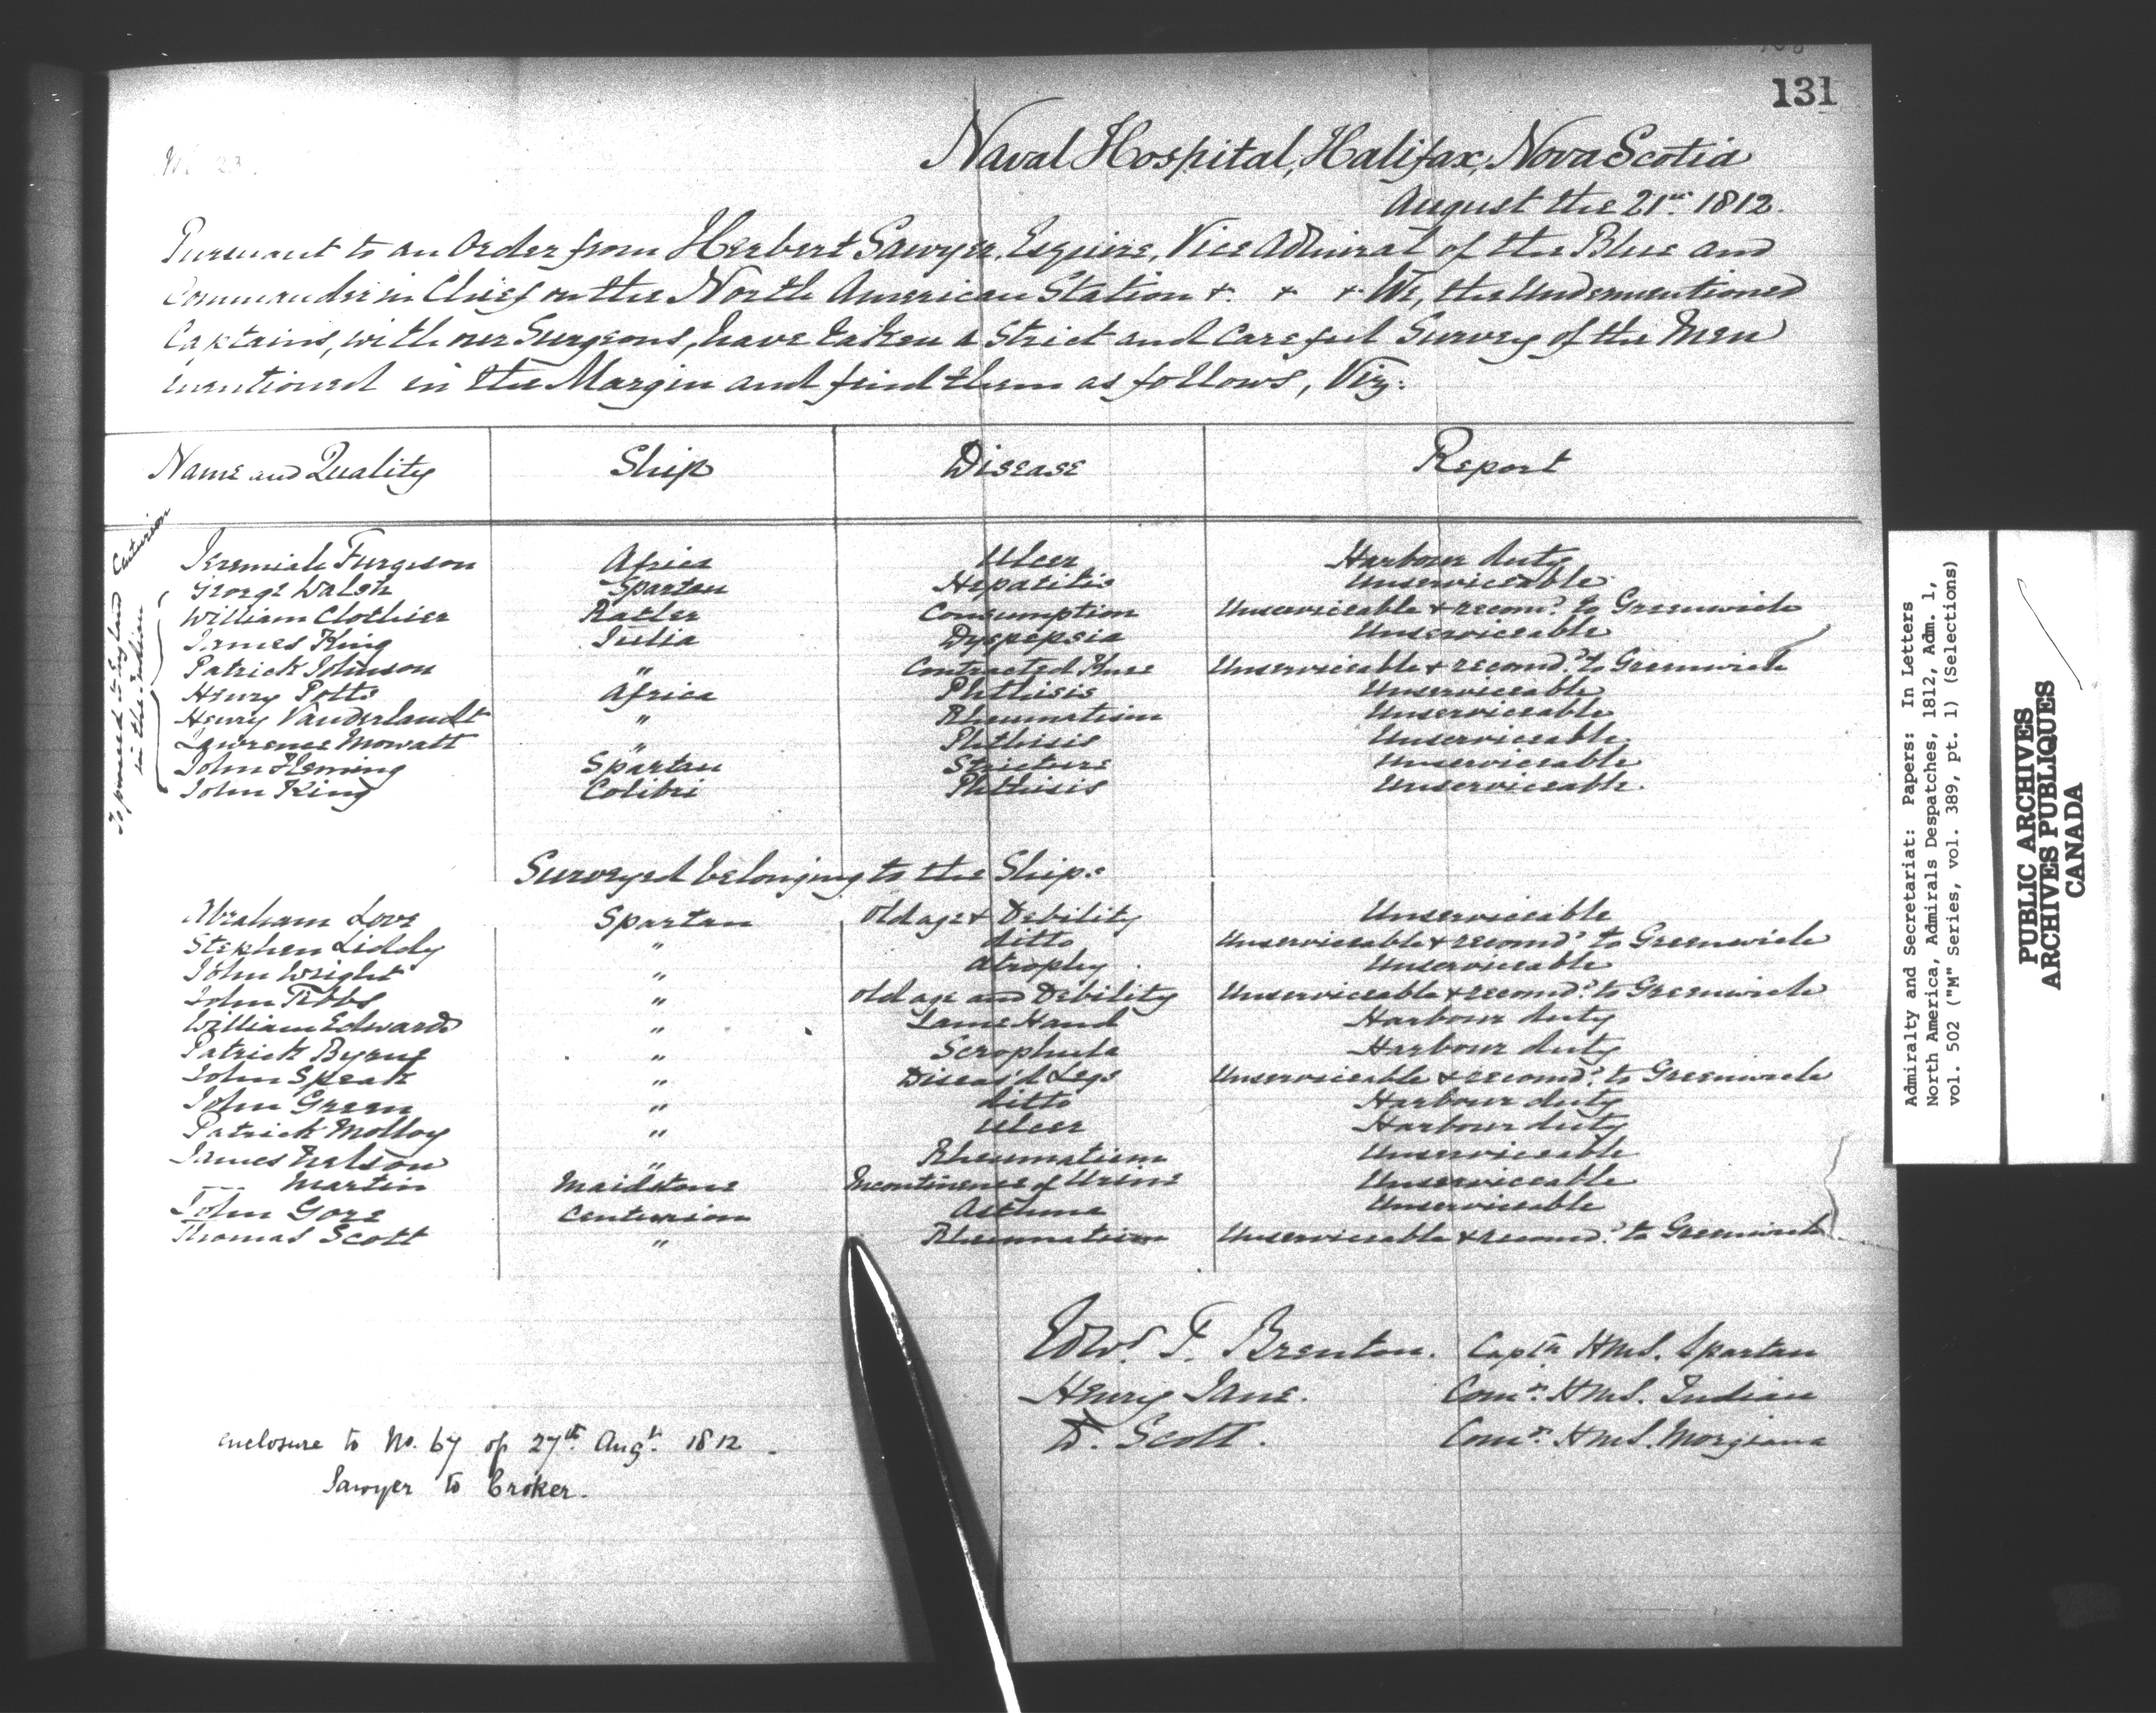 131
Naval Hospital, Halifax, Nova Scotia
August the 21st 1812.
Pursuant to an Order from Herbert Sawyer, Esquire, Vice Admiral of the Blue and
Commander in Chief on the North American Station + + + We, the Undermentioned
Captains, with our Surgeons, have taken a Strict and Careful Survey of the Men
mentioned in the Margin and find them as follows, Viz:
Name and Quality Ship Disease Report
To proceed to England
in the Indian
Centurion
Jeremiah Furgeson Africa Ulcer Harbour duty
George Walsh Spartan Hepatitis Unserviceable
William Clothier Ratler Consumption Unserviceable & recomd. to Greenwich
James King Julia Dyspepsia Unserviceable
Patrick Johnson " Contracted Knee Unserviceable & recomd. to Greenwich
Henry Potts Africa Phthisis Unserviceable
Henry Vanderlandt " Rheumatism Unserviceable
Lawrence Mowatt " Phthisis Unserviceable
John Fleming Spartan Stricture Unserviceable
John King Colibri Phthisis Unserviceable.
Surveyed belonging to the Ships
Abraham Love Spartan Old age & Debility Unserviceable
Stephen Liddy " ditto Unserviceable & recomd. to Greenwich
John Wright " Atrophy Unserviceable
John Tibbs " Old age and Debility Unserviceable & recomd. to Greenwich
William Edwards " Lame Hand Harbour duty
Patrick Byrne " Scrophula Harbour duty
John Speak " Diseas'd Legs Unserviceable & recomd. to Greenwich
John Green " ditto Harbour duty
Patrick Molloy " Ulcer Harbour duty
James Nelson " Rheumatism Unserviceable
— Martin Maidstone Incontinence of Urine Unserviceable
John Gore Centurion Asthma Unserviceable
Thomas Scott " Rheumatism Unserviceable & recomd. to Greenwich
Edwd. T. Brenton. Captn HMS. Spartan
Henry Jane. Comr. HMS. Indian
D. Scott. Comr. HMS. Morgiana
enclosure to No. 67 of 27th Augt. 1812.
Sawyer to Croker.
Admiralty and Secretariat: Papers: In Letters
North America, Admirals Despatches, 1812, Adm. 1,
vol. 502 ("M" Series, vol. 389, pt. 1) (Selections)
PUBLIC ARCHIVES
ARCHIVES PUBLIQUES
CANADA